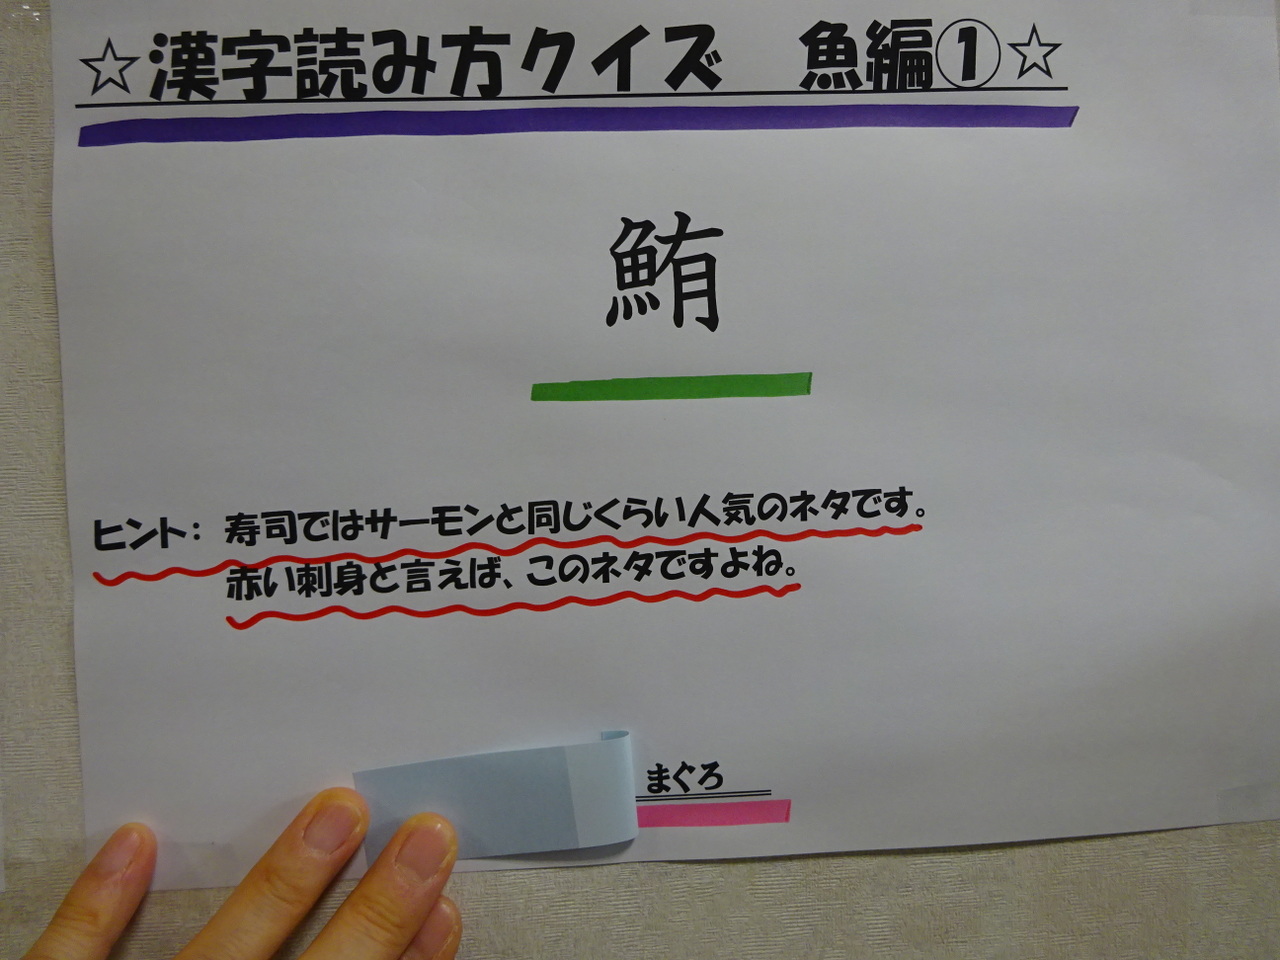 ☆漢字読み方クイズ　魚編①☆
鮪
ヒント：寿司ではサーモンと同じくらい人気のネタです。
赤い刺身と言えば、このネタですよね。
まぐろ